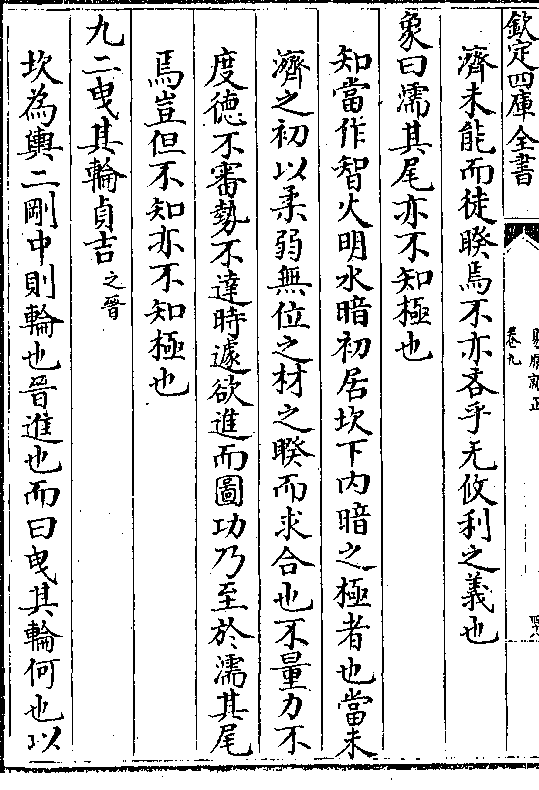 欽定四庫全書
濟未能而徒暌焉不亦吝乎无攸利之義也
象曰濡其尾亦不知極也
知當作智火明水暗初居坎下内暗之極者也當未
濟之初以柔弱無位之材之暌而求合也不量力不
度德不審勢不達時遽欲進而圖功乃至於濡其尾
焉豈但不知亦不知極也
九二曳其輪貞吉之晉
坎為輿二剛中則輪也晉進也而曰曳其輪何也以
卷九